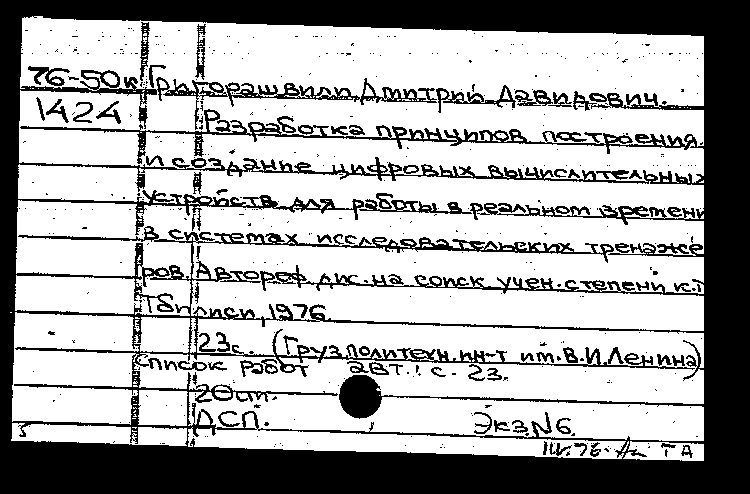 76-50к Григорашвили, Дмитрий Давидович.
1424 Разработка принципов построения
и создание цифровых вычислительных
устройств для работы в реальном времени
в системах исследовательских тренаже
ров. Автореф. дис. на соиск учен. степени к.т
Тбилиси, 1976.
23с. (Груз.политехн.ин-т им.В.И.Ленина)
Список работ авт.: с. 23.
20сп.
ДСП. Экз.N6.
5 III.76. ТА